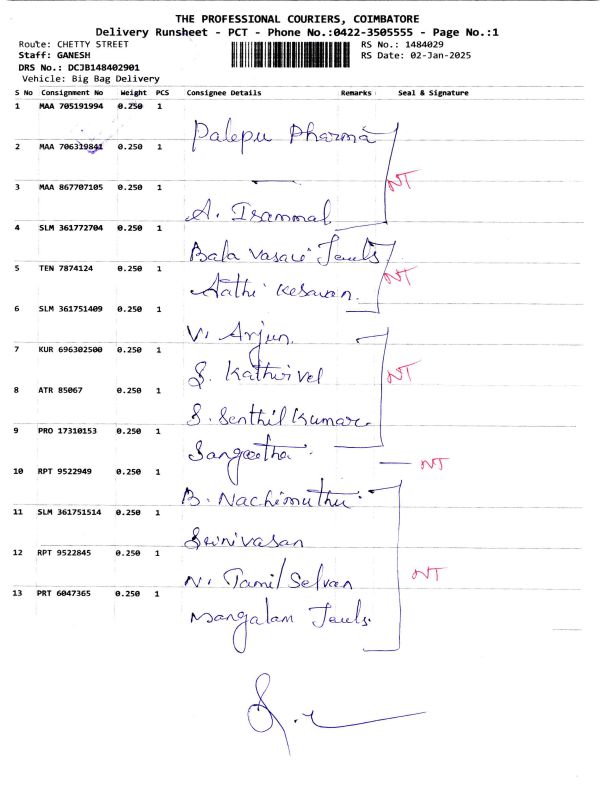 THE PROFESSIONAL COURIERS, COIMBATORE
Delivery Runsheet - PCT - Phone No.:0422-3505555 - Page No.:1
Route: CHETTY STREET RS No.: 1484029
Staff: GANESH RS Date: 02-Jan-2025
DRS No.: DCJB148402901
Vehicle: Big Bag Delivery
S No Consignment No Weight PCS Consignee Details Remarks Seal & Signature
1 MAA 705191994 0.250 1
Palepu Pharma
2 MAA 706319841 0.250 1
3 MAA 867707105 0.250 1 NT
A. Isammal
4 SLM 361772704 0.250 1
Bala Vasavi Jewls
5 TEN 7874124 0.250 1 NT
Aathi Kesavan.
6 SLM 361751409 0.250 1
V. Arjun.
7 KUR 696302500 0.250 1
S. Kathirvel NT
8 ATR 85067 0.250 1
S. Senthil Kumar.
9 PRO 17310153 0.250 1
Sangeetha. NT
10 RPT 9522949 0.250 1
B. Nachimuthu
11 SLM 361751514 0.250 1
Srinivasan
12 RPT 9522845 0.250 1
N. Tamil Selvan NT
13 PRT 6047365 0.250 1
Mangalam Jewls.